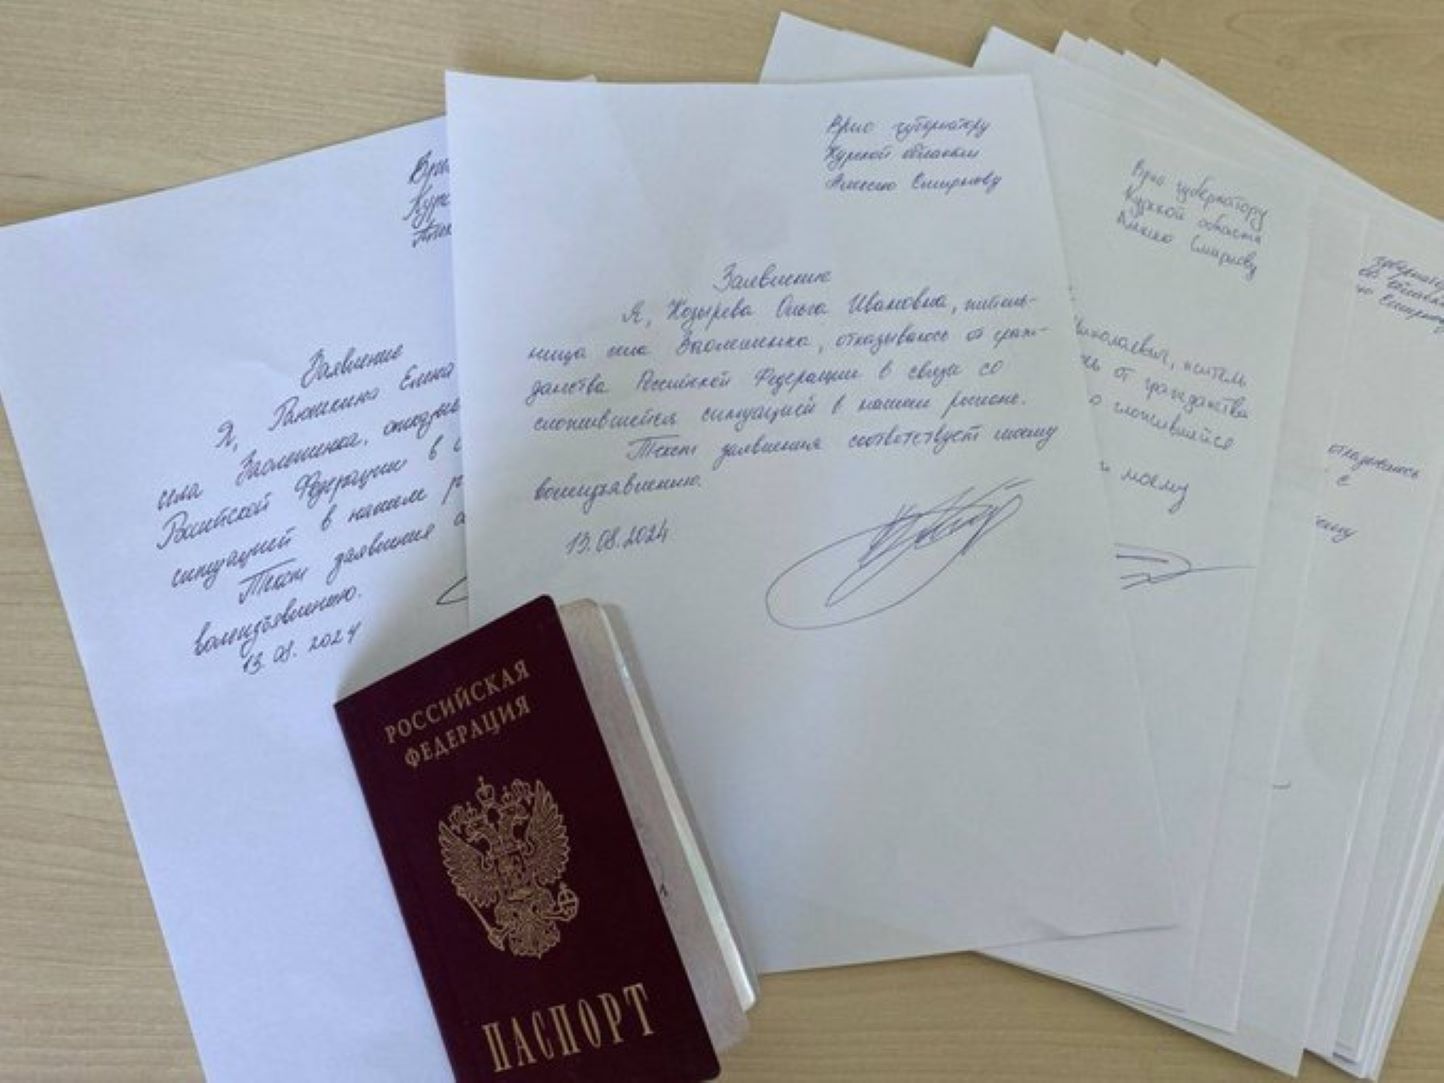 Врио
Курс
Алек
Заявление
Я, Елена
села Заолешенка, отказыв
Российской Федерации в с
ситуацией в нашем р
Текст заявления с
волеизъявлению.
13.08.2024
Врио губернатору
Курской области
Алексею Смирнову
Заявление
Я, Козырева Ольга Ивановна, житель-
ница села Заолешенка, отказываюсь от граж-
данства Российской Федерации в связи со
сложившейся ситуацией в нашем регионе.
Текст заявления соответствует моему
волеизъявлению.
13.08.2024
Врио губернатору
Курской области
Алексею Смирнову
Николаевич, житель
сь от гражданства
о сложившейся
моему
губернатору
ой области
ю Смирнову
отказываюсь
с
моему
РОССИЙСКАЯ
ФЕДЕРАЦИЯ
ПАСПОРТ